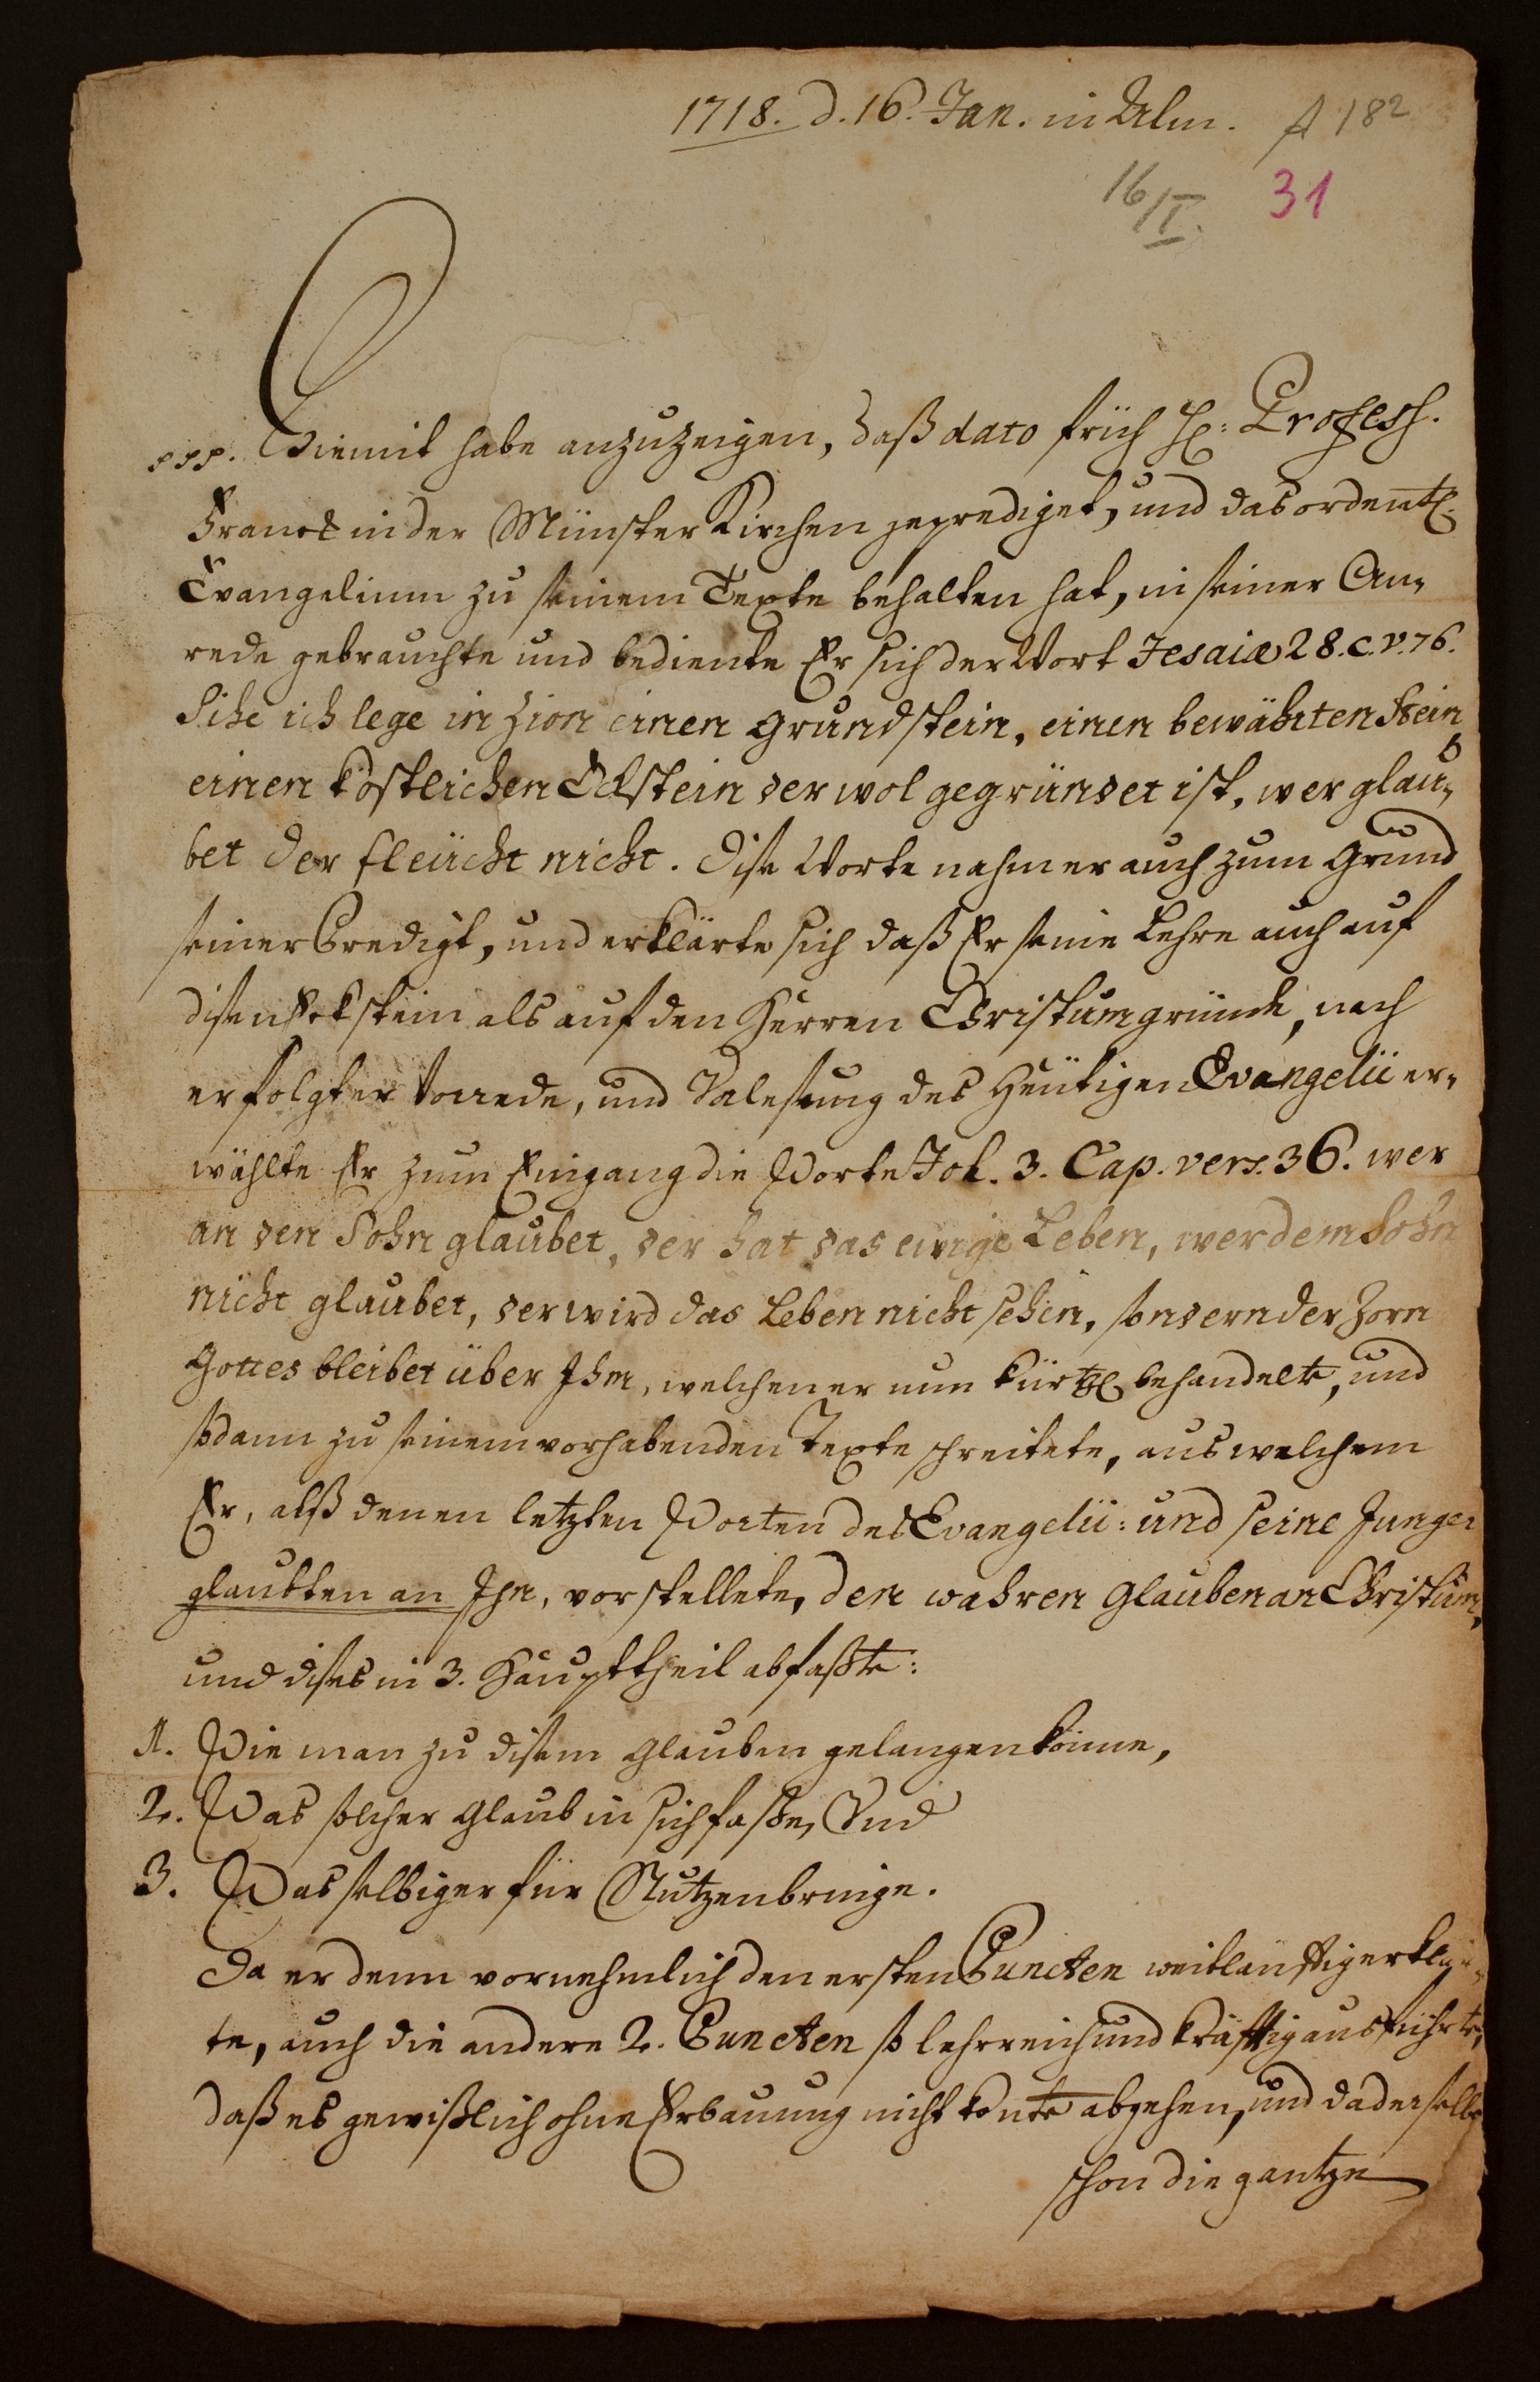 1718. d. 16. Jan. in Ulm. A 182
16/I. 31
ppp. Hiemit habe anzuzeigen, daß dato früh H: Profess.
Franck in der Münster Kirchen geprediget, und das ordentl.
Evangelium zu seinem Texte behalten hat, in seiner An-
rede gebrauchte und bediente Er sich der Wort Jesaiæ 28. c. v. 16.
Sihe ich lege in Zion einen grundstein, einen bewährten Stein
einen köstlichen Eckstein der wol gegründet ist, wer glau-
bet der fleücht nicht. Dise Worte nahm er auch zum Grund
seiner Predigt, und erklärte sich daß Er seine Lehre auch auf
disen Eckstein als auf den Herren Christum gründe, nach
erfolgter Vorrede, und Valesung des Heütigen Evangelii er-
wählte Er zum Eingang die Worte Joh. 3. Cap. vers. 36. wer
an den Sohn glaubet, der hat das ewige Leben, wer dem Sohn
nicht glaubet, der wird das Leben nicht sehen, sondern der Zorn
Gottes bleibet über Ihm, welchen er nun kürtzl. behandelte, und
sodann zu seinem vorhabenden Texte schreitete, aus welchem
Er, alß denen letzten Worten des Evangelii: und seine Junger
glaubten an Ihn, vorstellete, den wahren Glauben an Christum,
und dises in 3. Haupttheil abfaßte:
1. Wie man zu disem Glauben gelangen könne,
2. Was solcher Glaub in sich faße, Und
3. Was selbiger für Nutzen bringe.
Da er denn vornehmlich den ersten Puncten weitläufftig erklär-
te, auch die andere 2. Puncten so lehrreich und kräfftig ausführte,
daß es gewißlich ohne Erbauung nicht konte abgehen, und da derselbe
schon die gantze